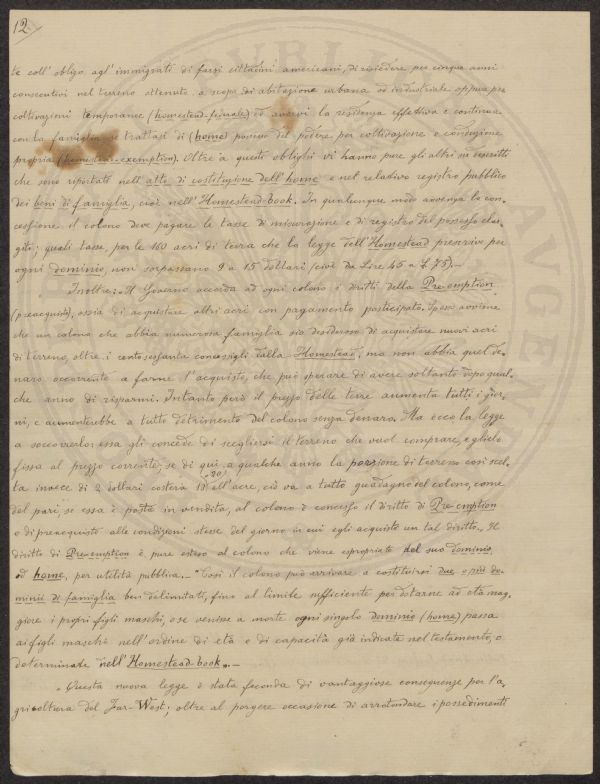 12.
te coll' obligo agl' immigrati di farsi cittadini americani, di risiedere per cinque anni
consecutivi nel terreno ottenuto a scopo di abitazione urbana od industriale oppure per
coltivazioni temporanee (homestead-federale) ed avervi la residenza effettiva e continua
con la famiglia se trattasi di (home) podere per coltivazione e conduzione
propria (homestead-exemption). Oltre a questi oblighi vi hanno pure gli altri
che sono riportati nell' atto di costituzione dell' home e nel relativo registro pubblico
dei beni di famiglia, cioè nell' Homestead-book. In qualunque modo avvenga la con-
cessione il colono deve pagare le tasse di misurazione e di registro del possesso
quali tasse, per le 160 acri di terra che la legge dell' Homestead prescrive per
ogni dominio, non sorpassano 9 a 15 dollari (cioè da Lire 45 a £. 75).—
Inoltre: Il Governo accorda ad ogni colono i diritti della Pre-emption
(preacquisto), ossia di acquistare altri acri con pagamento posticipato. Spesso avviene
che un colono che abbia numerosa famiglia sia desideroso di acquistare nuovi acri
di terreno, oltre i centosessanta concessigli dalla Homestead, ma non abbia quel de-
naro occorrente a farne l'acquisto, che può sperare di avere soltanto dopo qual-
che anno di risparmi. Intanto però il prezzo delle terre aumenta tutti i gior-
ni, e aumenterebbe a tutto detrimento del colono senza denaro. Ma ecco la legge
a soccorrerlo: essa gli concede di scegliersi il terreno che vuol comprare, e glielo
fissa al prezzo corrente; se di qui a qualche anno la porzione di terreno così scel-
ta invece di 2 dollari costerà 15 o 20 all' acre, ciò va a tutto guadagno del colono, come
del pari, se essa è posta in vendita, al colono è concesso il diritto di Pre-emption
o di preacquisto alle condizioni stesse del giorno in cui egli acquistò un tal diritto. Il
diritto di Pre-emption è pure esteso al colono che viene espropriato del suo dominio,
od home, per utilità pubblica. Così il colono può arrivare a costituirsi due o più do-
minii di famiglia ben delimitati, fino al limite sufficiente per dotarne ad età mag-
giore i propri figli maschi, o se venisse a morte ogni singolo dominio (home) passa
ai figli maschi nell' ordine di età e di capacità già indicate nel testamento, o
determinate nell' Homestead-book.—
Questa nuova legge è stata feconda di vantaggiose conseguenze per l'a-
gricoltura del Far-West; oltre al porgere occasione di arrotondare i possedimenti